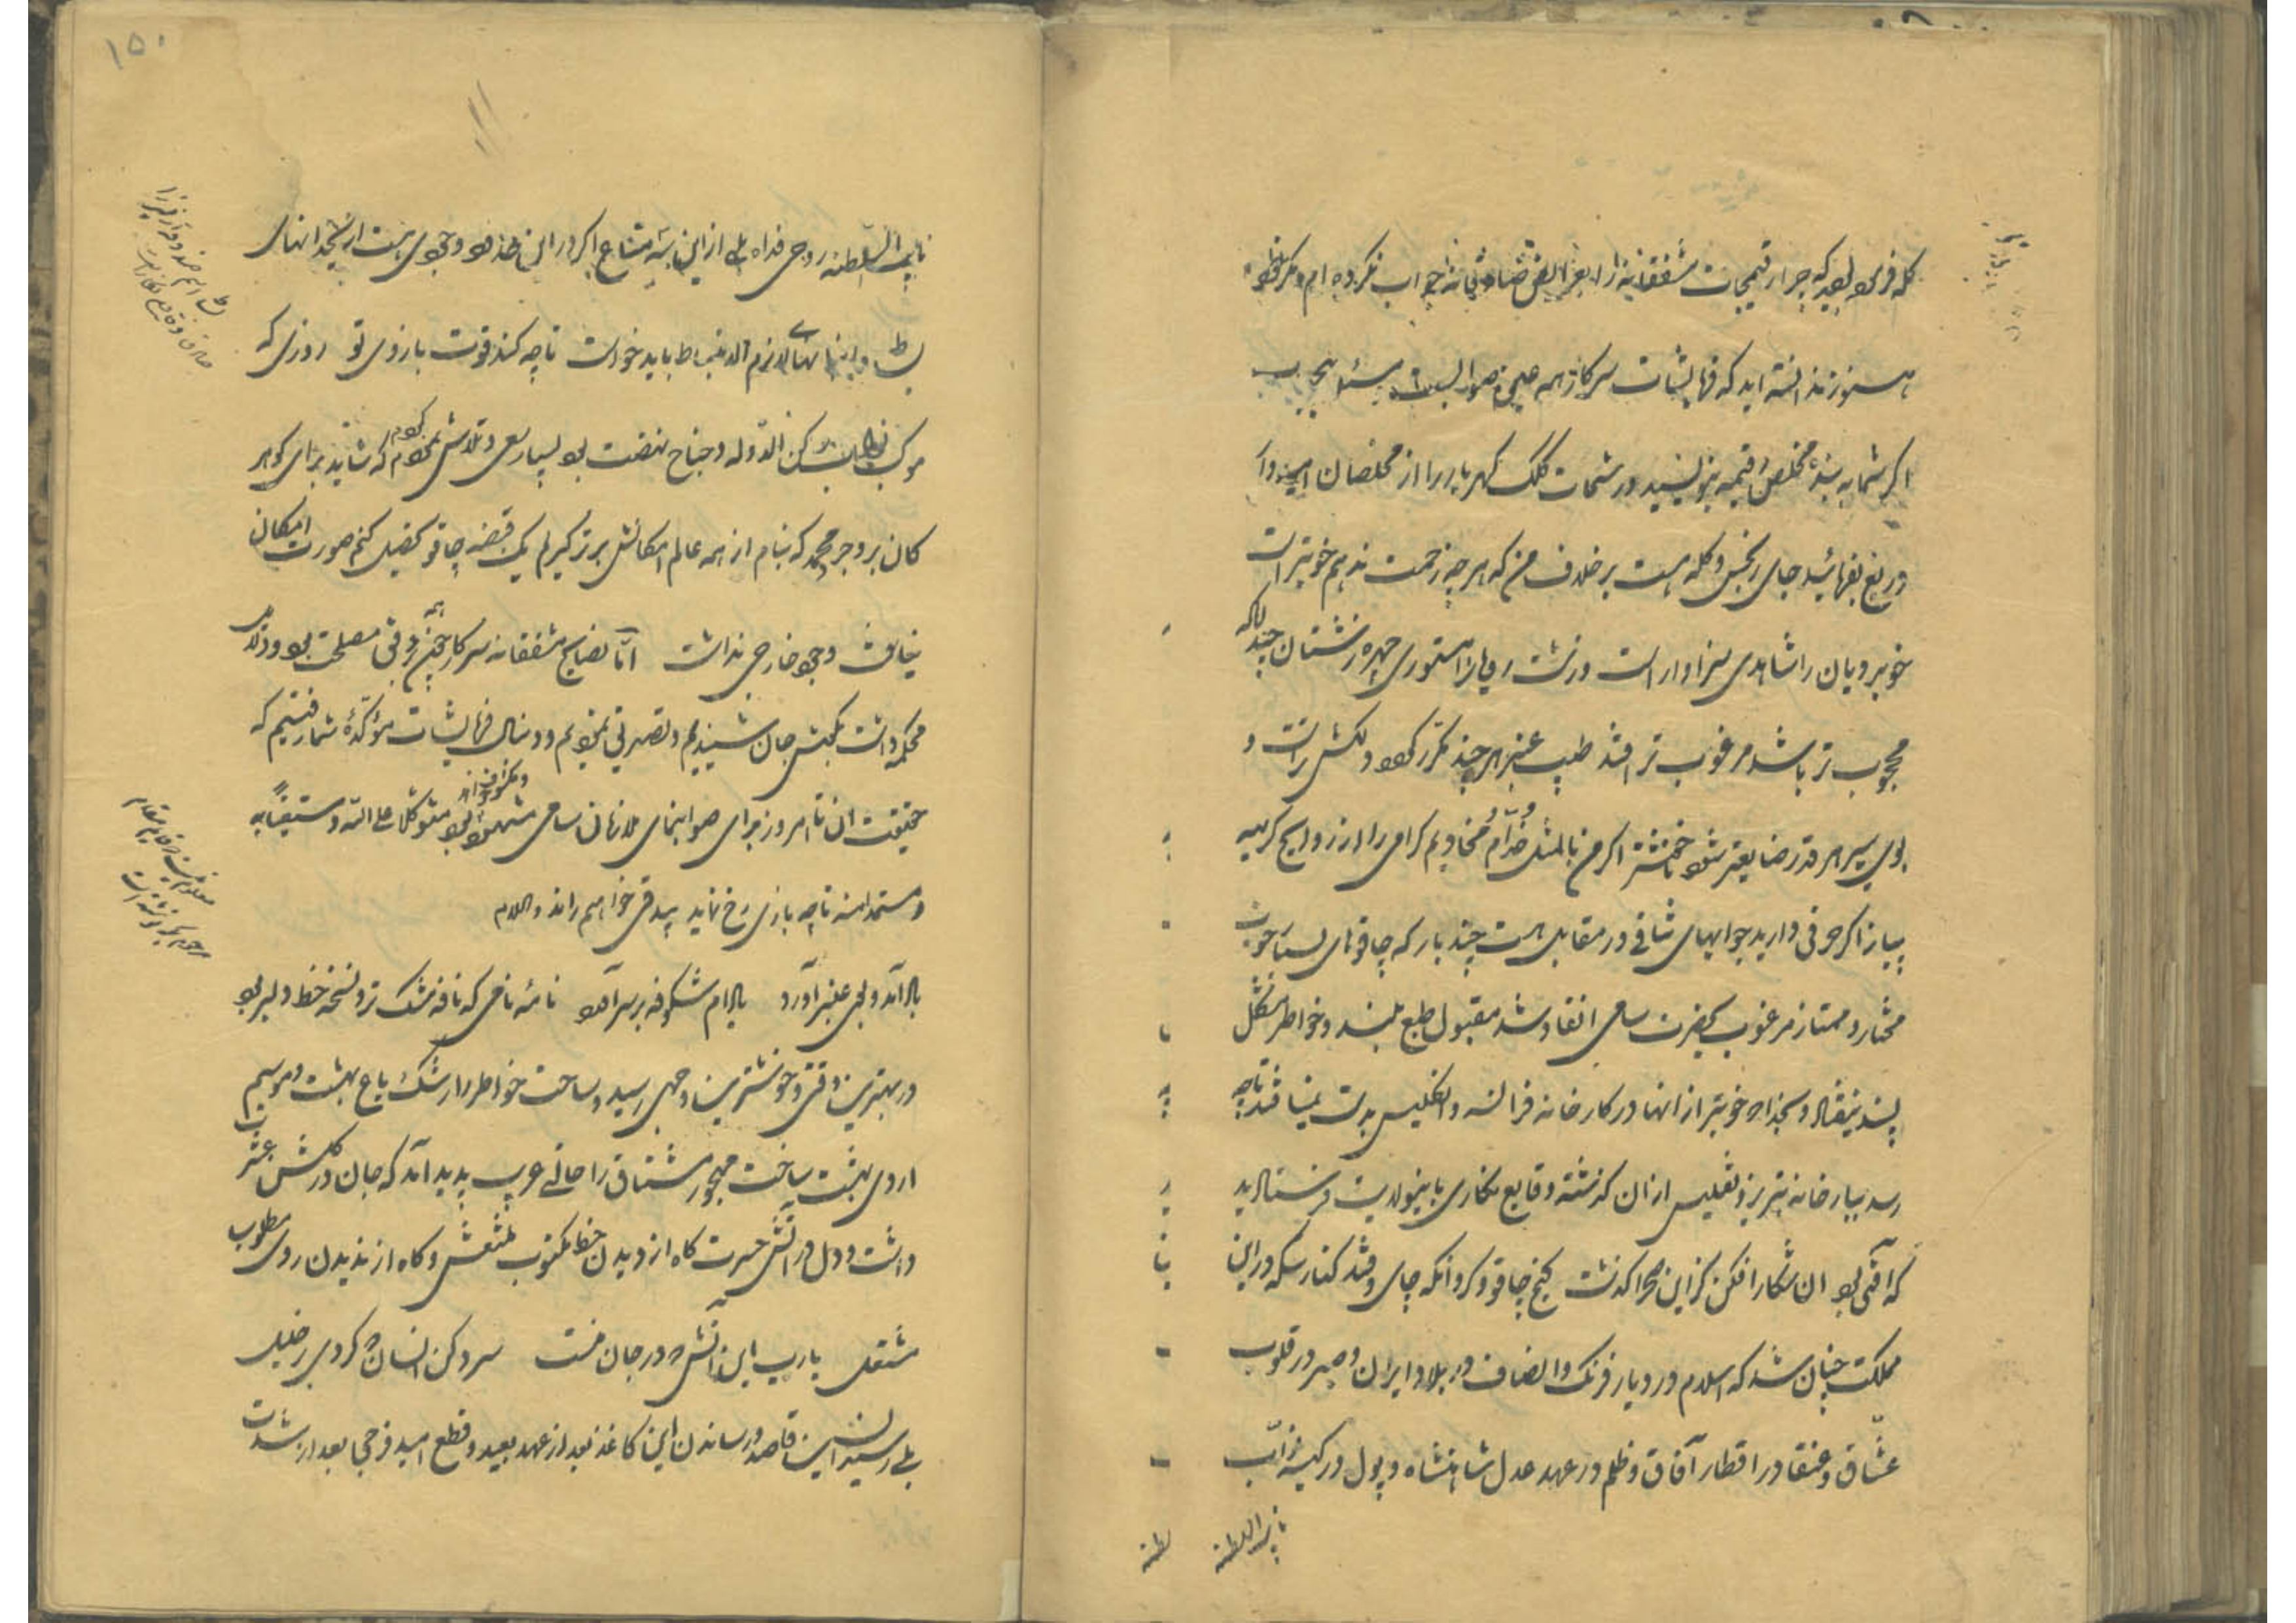 گله فرموده بودید که چرا رقیمجات مشفقانه را بعرایض صادقانه جواب نکرده ام و مگر
هنوز ندانسته اید که فرمایشات سرکار همه صحیح و صوابست
اگر شما به بنده مخلص رقیمه ننویسید و رشحات کلک گهربار را از مخلصان امیدوار
دریغ بفرمائید جای رنجش و گله هست بر خلاف من که هر چه زحمت ندهم خوبتر است
خوبرویان را شاهدی سزاوار است و زشت رویان را مستوری چهره زشتان چندانکه
محجوب تر باشد مرغوب تر افتد طیب عنبر هر چند مکرر شود دلکش تر است و
بوی سیر هر قدر ضایعتر شود خوشتر اگر من بالمثل خدام مخادیم گرامی را از روایح کریهه
پیاز ذکر حرفی دارید جوابهای شافی در مقابل هست چند بار که چاقوهای بسیار خوب
مختار و ممتاز مرغوب بحضرت سامی انفاد شد مقبول طبع بلند و خواطر مشکل
پسند نیفتاد و بخدا که خوبتر از آنها در کارخانه فرانسه و انگلیس بدست نمیافتد تا چه
رسد بکارخانه تبریز و تفلیس از آن گذشته وقایع نگاری باینولایت فرستادید
که آفتی بود آن شکار افکن کزین صحرا گذشت کنج چاقو و کرو آنکه جای و قند کنار سکه در این
مملکت چنان شد که اسلام در دیار فرنک و انصاف در بلاد ایران و صبر در قلوب
عشاق و عنقا در اقطار آفاق و ظلم در عهد عدل شاهنشاه و پول در کیسه نواب
نایب السلطنه
نایب السلطنه روحی فداه بلی از این اشیا متاع اگر در آن خانه وجودی هست از
بسط و اینها نهالازم الانبساط باید خواست تا چه کند قوت بازوی تو روزی که
موکب نواب رکن الدوله و جناح نهضت بود بسیار سعی و تلاش نمودم که شاید برای گوهر
کان بروجرد محمد که بنام از همه عالم امکانش برتر گیرم یک قبضه چاقو تحصیل کنم صورت امکان
نیافت و وجود خارجی نداشت اما نصایح مشفقانه سرکار چون همه بر وفق مصلحت بود و
محکمه داشت بگوش جان شنیدیم و تصدیق نمودیم و دنبال فرمایشات مؤکده شما رفتیم که
حقیقت آن تا امروز برای صوابنمای ملازمان سامی مشهود بود متوکلا علی الله و مستیقنا به
و مستمدا منه تا چه بازی رخ نماید بیدقی خواهیم راند والسلام
باد آمد و بوی عنبر آورد بادام شکوفه بر سر آورد نامه نامی که نافه مشک تر و نسخه خط دلبر بود
در بهترین وقتی و خوشترین وجهی رسید و ساحت خواطر را رشک باغ بهشت و موسم
اردی بهشت ساخت مهجور مشتاق را حالتی عجیب پدید آمد که جان در گلشن عشرت
داشت و دل در آتش حسرت گاه از دیدن خط مکتوب منتعش و گاه از ندیدن روی مطلوب
مشتعل یا رب این آتش که در جان منست سرد کن آنسان که کردی بر خلیل
بلی رسیدن این قاصد و رساندن این کاغذ بعد از عهد بعید و قطع امید فرجی بعد از شدت
۱۵۰